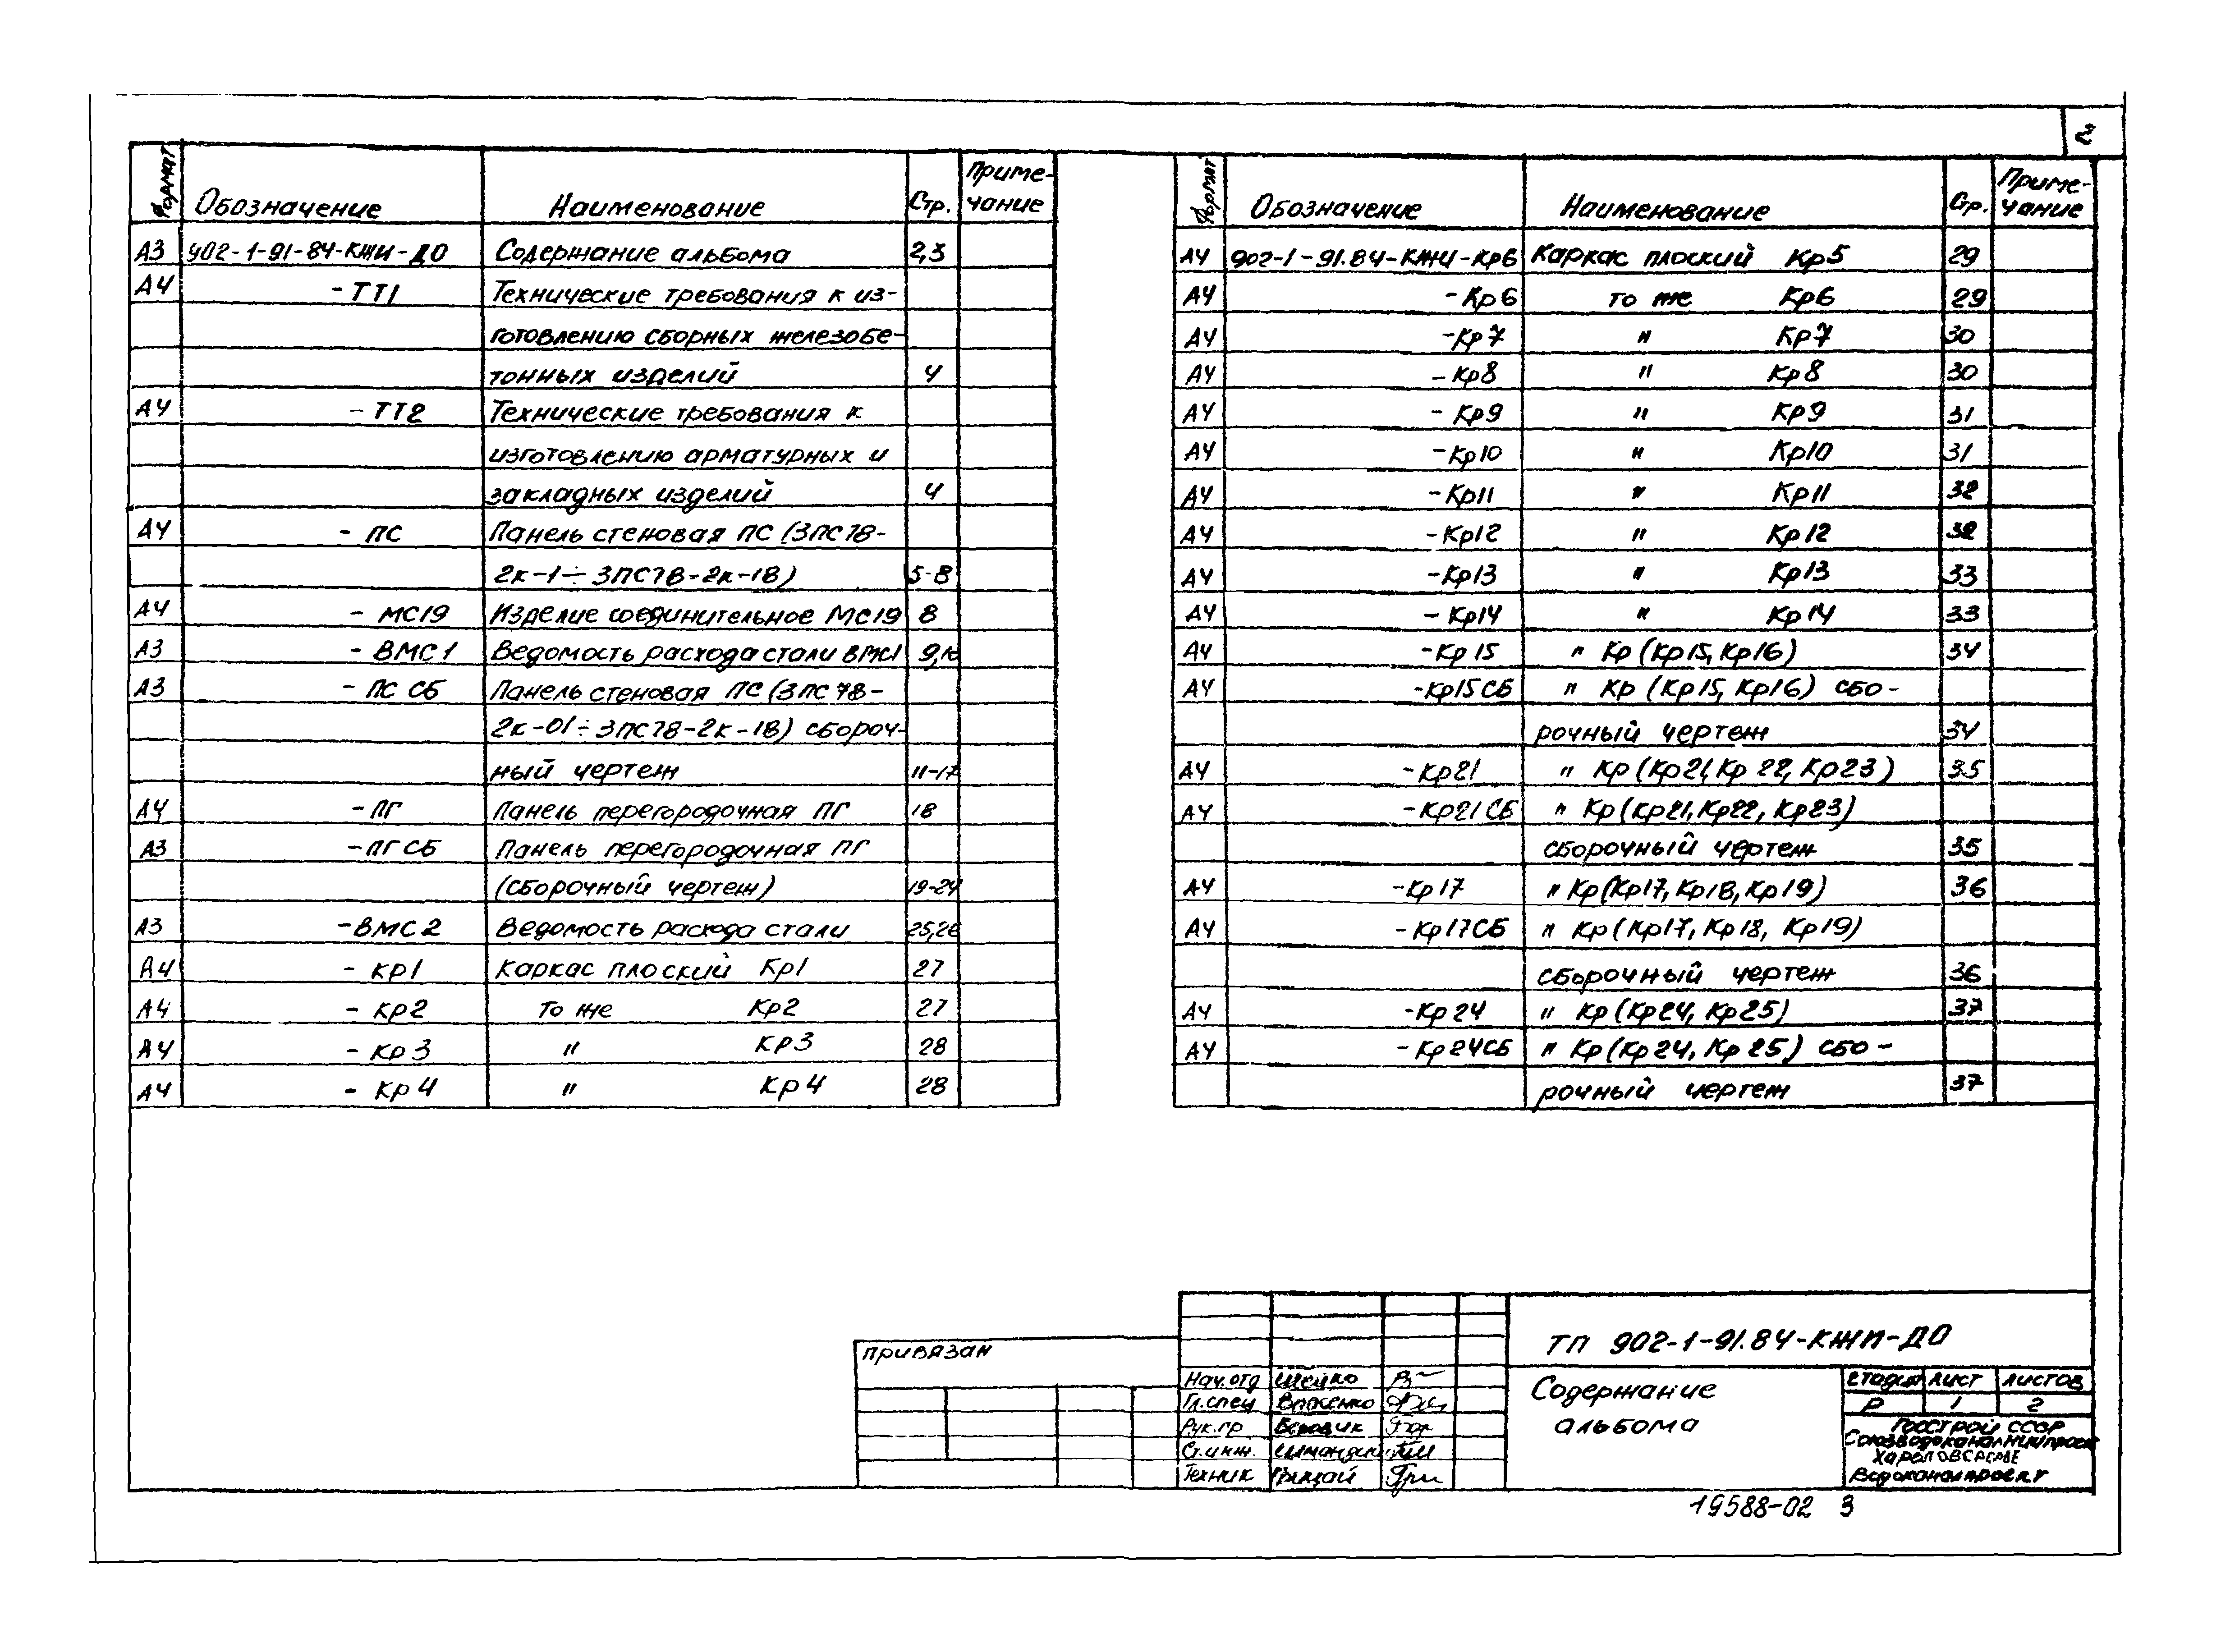 2
Формат Обозначение Наименование Стр. Приме-
чание
А3 902-1-91-84-КЖИ-ДО Содержание альбома 2,3
А4 -ТТ1 Технические требования к из-
готовлению сборных железобе-
тонных изделий 4
А4 -ТТ2 Технические требования к
изготовлению арматурных и
закладных изделий 4
А4 - ПС Панель стеновая ПС (3ПС78-
2к-1÷3ПС78-2к-18) 5-8
А4 - МС19 Изделие соединительное МС19 8
А3 - ВМС1 Ведомость расхода стали ВМС1 9,10
А3 - ПС СБ Панель стеновая ПС (3ПС78-
2к-01÷3ПС78-2к-18) сбороч-
ный чертеж 11-17
А4 -ПГ Панель перегородочная ПГ 18
А3 -ПГСБ Панель перегородочная ПГ
(сборочный чертеж) 19-24
А3 -ВМС2 Ведомость расхода стали 25,26
А4 - Кр1 Каркас плоский Кр1 27
А4 - Кр2 То же Кр2 27
А4 - Кр3 " Кр3 28
А4 - Кр4 " Кр4 28
Формат Обозначение Наименование Стр. Приме-
чание
А4 902-1-91.84-КЖИ-Кр6 Каркас плоский Кр5 29
А4 -Кр6 то же Кр6 29
А4 -Кр7 " Кр7 30
А4 -Кр8 " Кр8 30
А4 - Кр9 " Кр9 31
А4 -Кр10 " Кр10 31
А4 -Кр11 " Кр11 32
А4 -Кр12 " Кр12 32
А4 -Кр13 " Кр13 33
А4 - Кр14 " Кр14 33
А4 -Кр15 " Кр (Кр15, Кр16) 34
А4 -Кр15СБ " Кр (Кр15, Кр16) сбо-
рочный чертеж 34
А4 -Кр21 " Кр (Кр21, Кр22, Кр23) 35
А4 -Кр21СБ " Кр (Кр21, Кр22, Кр23)
сборочный чертеж 35
А4 -Кр17 " Кр (Кр17, Кр18, Кр19) 36
А4 -Кр17СБ " Кр (Кр17, Кр18, Кр19)
сборочный чертеж 36
А4 -Кр24 " Кр (Кр24, Кр25) 37
А4 -Кр24СБ " Кр (Кр24, Кр25) сбо-
рочный чертеж 37
привязан
ТП 902-1-91.84-КЖИ-ДО
Нач.отд Шейко
Гл.спец Власенко
Рук.гр Боровик
Ст.инж.
Техник
Содержание
альбома
стадия лист листов
Р 1 2
Госстрой СССР
Союзводоканалниипроект
Харьковский
Водоканалпроект
19588-02 3